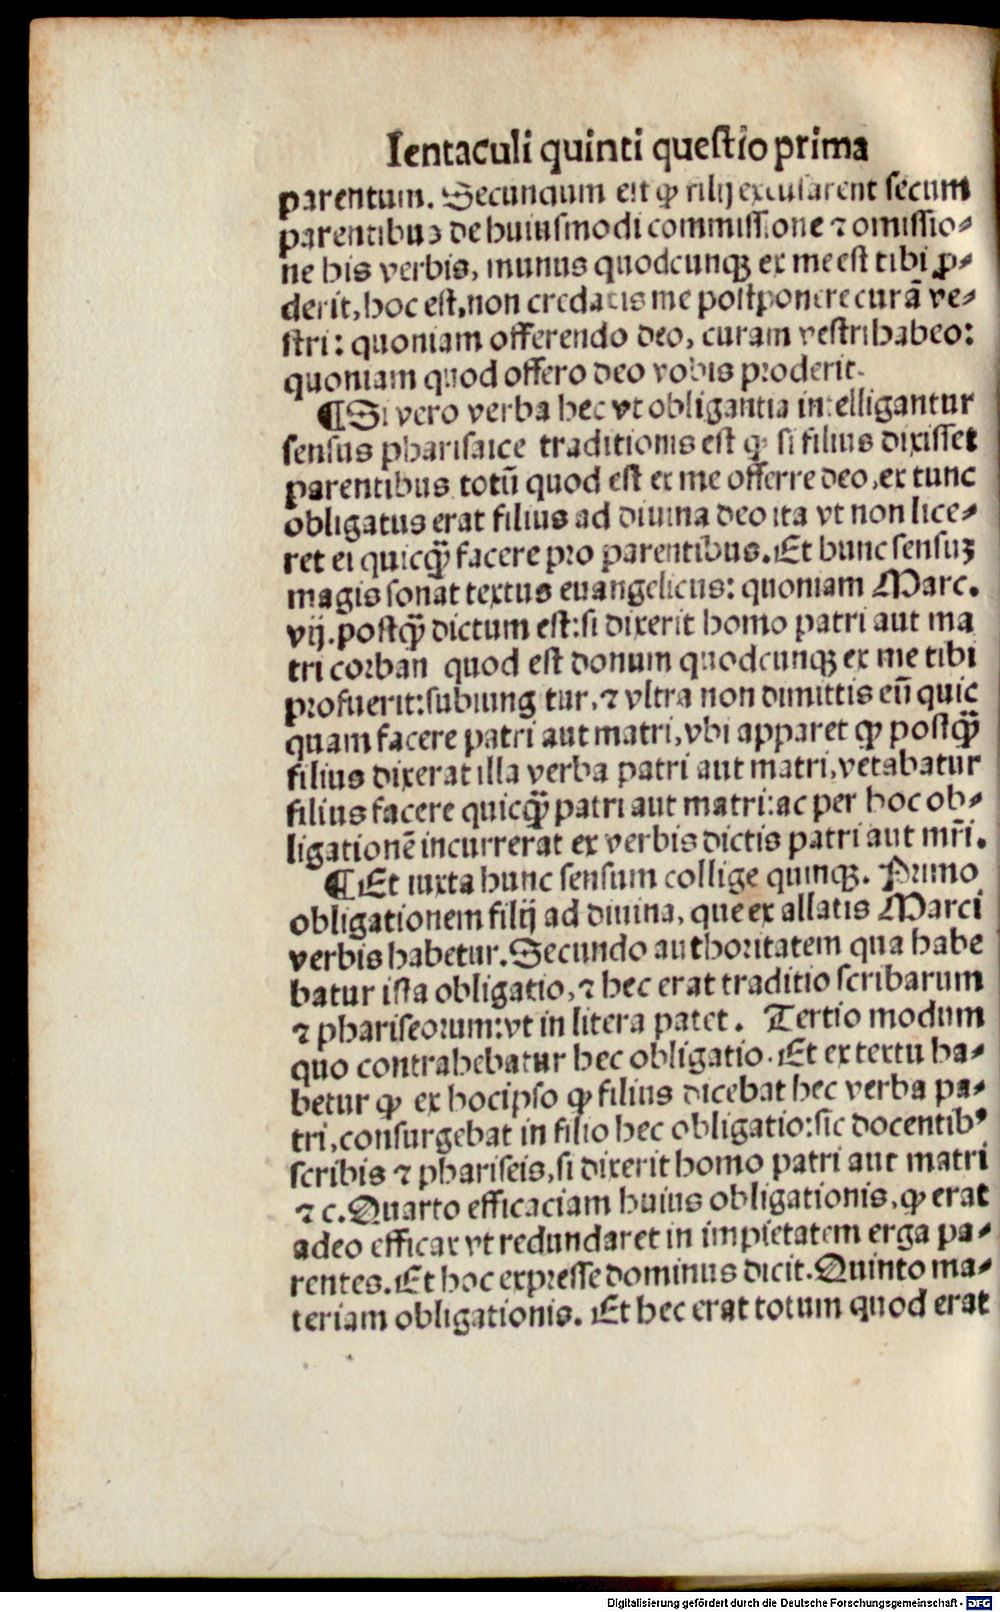 Ientaculi quinti questio prima
parentum. Secundum est ꝙ filij excusarent secum
parentibuꝫ de huiusmodi commissione ⁊ omissio⸗
ne his verbis, munus quodcunqꝫ ex me est tibi ꝓ⸗
derit, hoc est, non credatis me postponere curã ve⸗
stri: quoniam offerendo deo, curam vestri habeo:
quoniam quod offero deo vobis proderit.
¶Si vero verba hec vt obligantia intelligantur
sensus pharisaice traditionis est ꝙ si filius dixisset
parentibus totũ quod est ex me offerre deo, ex tunc
obligatus erat filius ad diuina deo ita vt non lice⸗
ret ei quicꝙ̃ facere pro parentibus. Et hunc sensuꝫ
magis sonat textus euangelicus: quoniam Marc.
vij. postꝙ̃ dictum est: si dixerit homo patri aut ma
tri corban quod est donum quodcunqꝫ ex me tibi
profuerit: subiung tur, ⁊ vltra non dimittis eũ quic
quam facere patri aut matri, vbi apparet ꝙ postꝙ̃
filius dixerat illa verba patri aut matri, vetabatur
filius facere quicꝙ̃ patri aut matri: ac per hoc ob⸗
ligationẽ incurrerat ex verbis dictis patri aut mr̃i.
¶Et iuxta hunc sensum collige quinqꝫ. Primo
obligationem filij ad diuina, que ex allatis Marci
verbis habetur. Secundo authoritatem qua habe
batur ista obligatio, ⁊ hec erat traditio scribarum
⁊ phariseorum: vt in litera patet. Tertio modum
quo contrahebatur hec obligatio. Et ex textu ha⸗
betur ꝙ ex hocipso ꝙ filius dicebat hec verba pa⸗
tri, consurgebat in filio hec obligatio: sic docentibꝰ
scribis ⁊ phariseis, si dixerit homo patri aut matri
⁊ c. Quarto efficaciam huius obligationis, ꝙ erat
adeo efficax vt redundaret in impietatem erga pa⸗
rentes. Et hoc expresse dominus dicit. Quinto ma⸗
teriam obligationis. Et hec erat totum quod erat
Digitalisierung gefördert durch die Deutsche Forschungsgemeinschaft - DFG